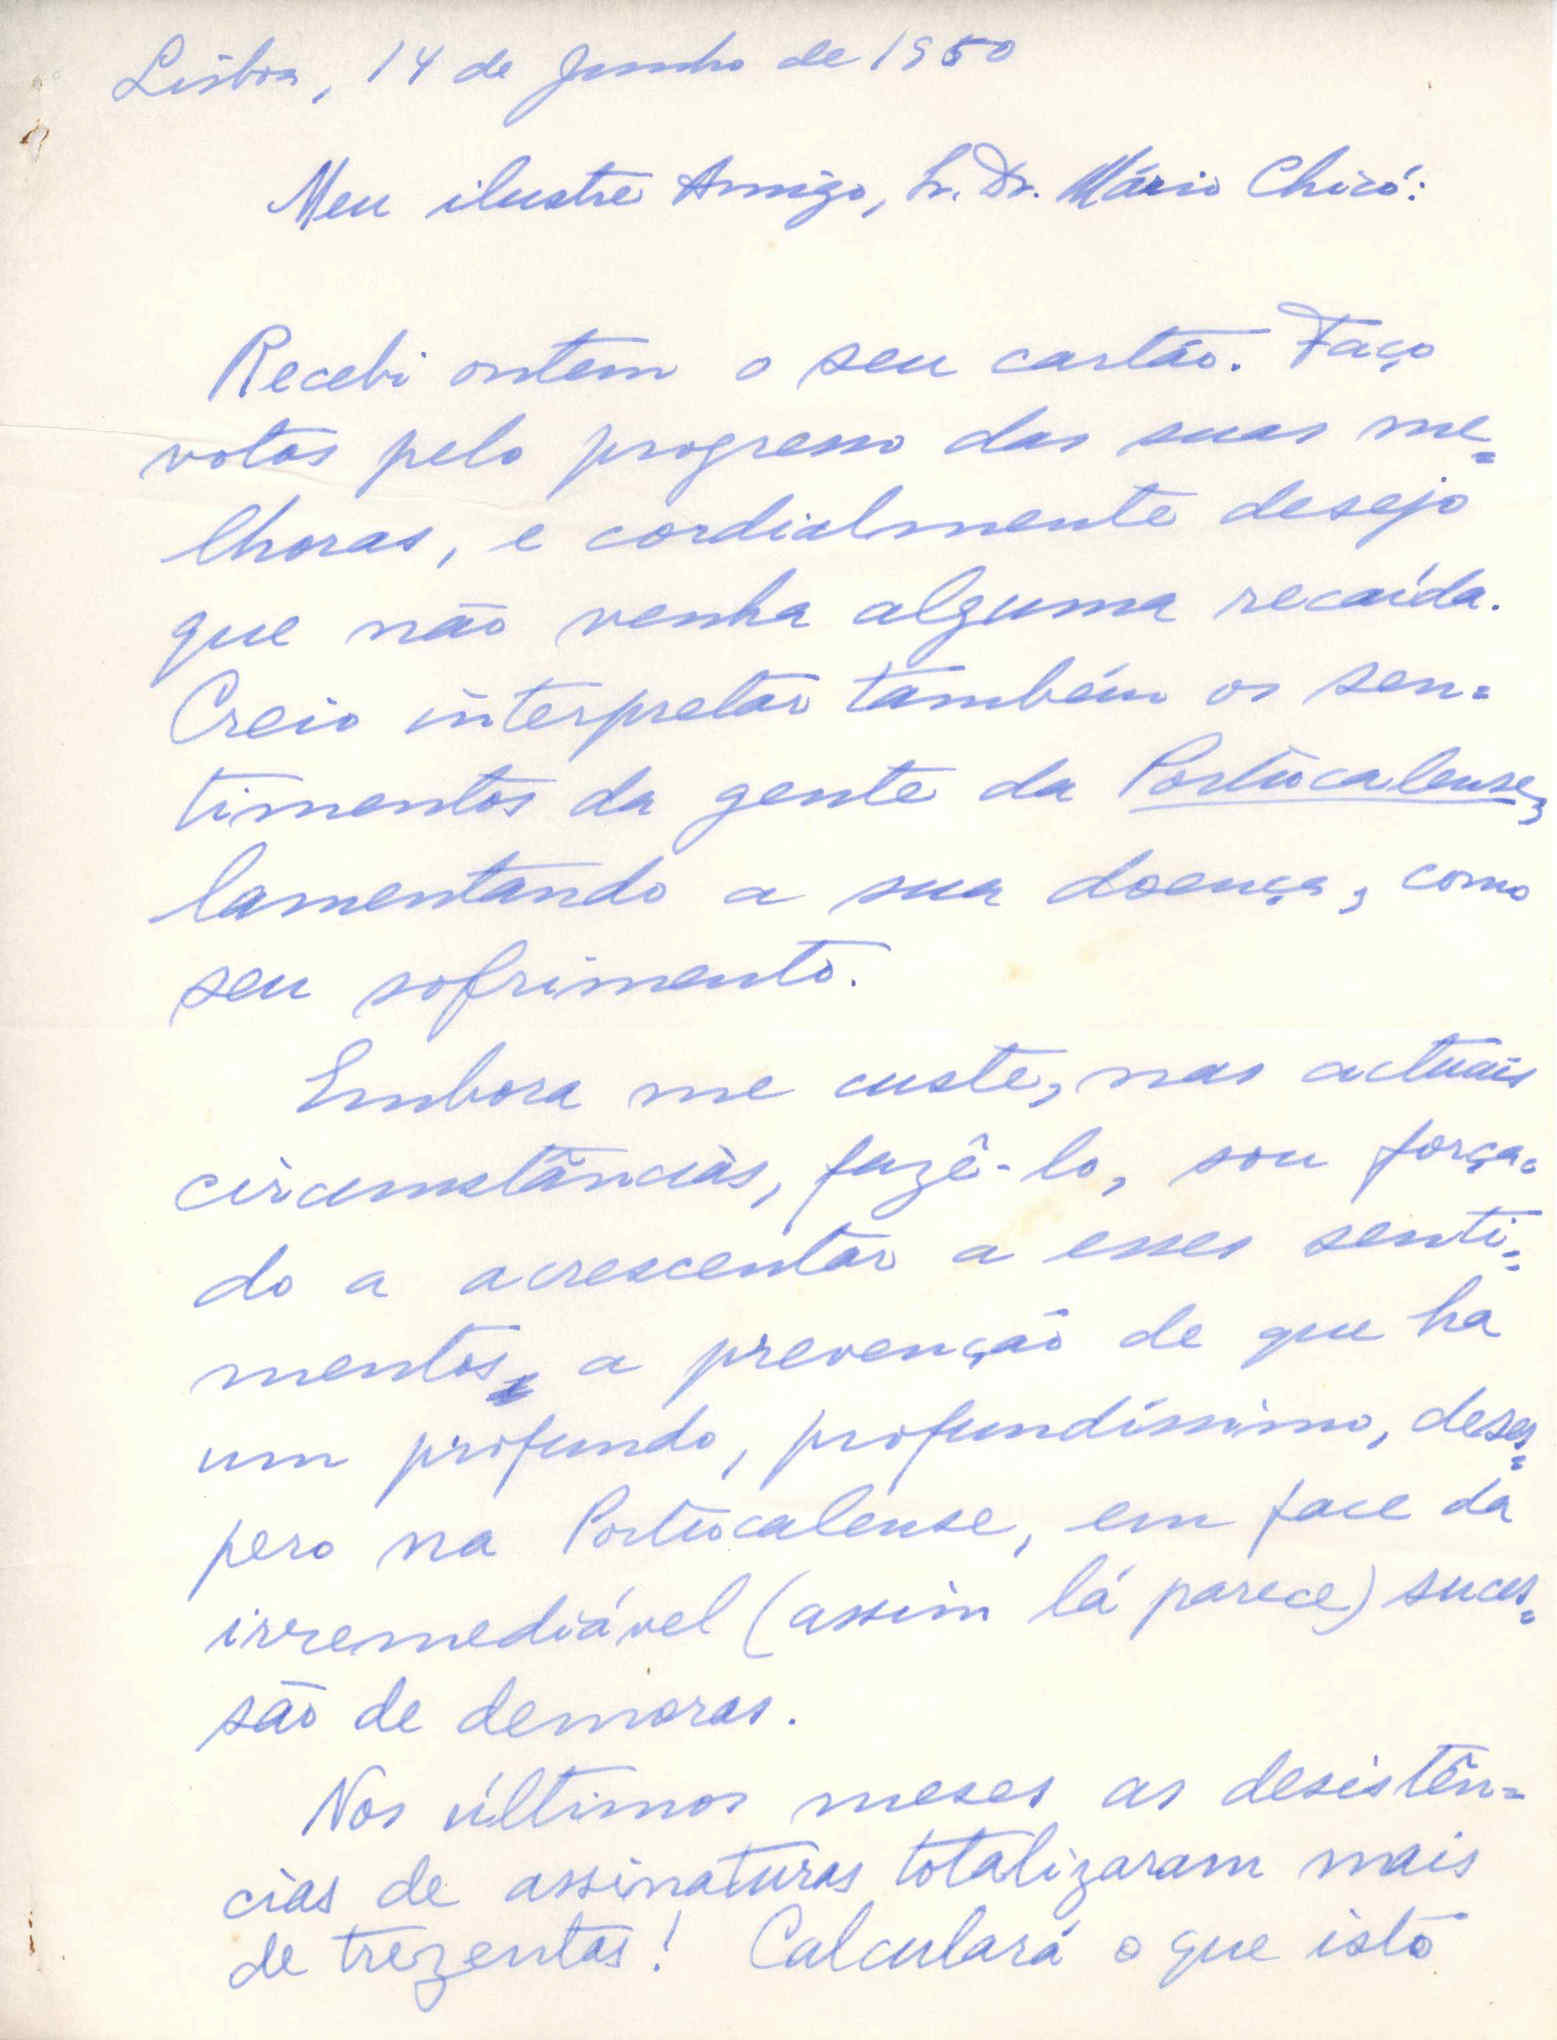 Lisboa, 14 de Junho de 1950
Meu ilustre Amigo, Sr. Dr. Mário Chicó:
Recebi ontem o seu cartão. Faço
votos pelo progresso das suas me=
lhoras, e cordialmente desejo
que não venha alguma recaída.
Creio interpretar também os sen=
timentos da gente da Portucalense,
lamentando a sua doença, como
seu sofrimento.
Embora me custe, nas actuais
circunstâncias, fazê-lo, sou força=
do a acrescentar a esses senti=
mentos, a prevenção de que ha
um profundo, profundíssimo, deses=
pero na Portucalense, em face da
irremediável (assim lá parece) suces=
são de demoras.
Nos últimos meses as desistên=
cias de assinaturas totalizaram mais
de trezentas! Calculará o que isto